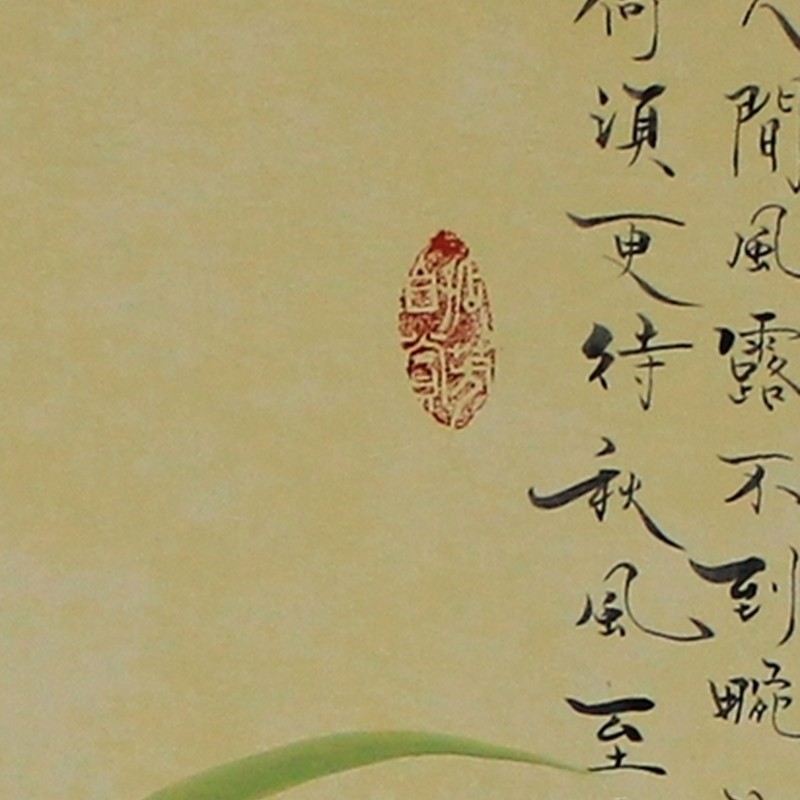 人間風露不到畹
何須更待秋風至